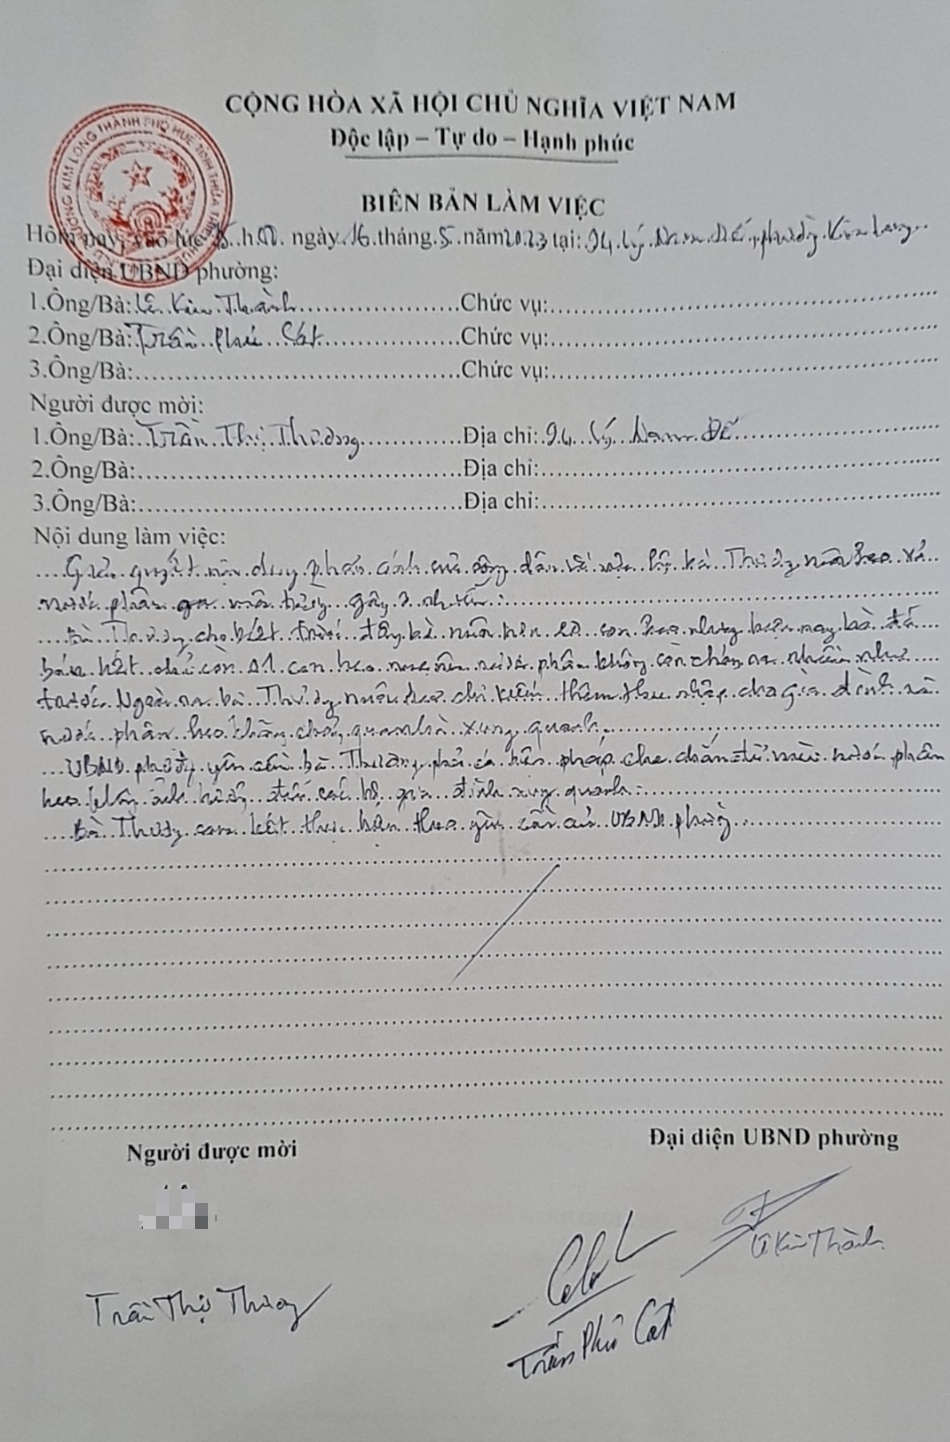 CỘNG HÒA XÃ HỘI CHỦ NGHĨA VIỆT NAM
Độc lập – Tự do – Hạnh phúc
BIÊN BẢN LÀM VIỆC
Hôm nay, vào lúc h00 ngày 16 tháng 5 năm 2023 tại: 94 Lý Nam Đế, phường Kim Long
Đại diện UBND phường:
1.Ông/Bà: Lê Kim Thành Chức vụ:
2.Ông/Bà: Trần Phú Cát Chức vụ:
3.Ông/Bà: Chức vụ:
Người được mời:
1.Ông/Bà: Trần Thị Thương Địa chỉ: 94 Lý Nam Đế
2.Ông/Bà: Địa chỉ:
3.Ông/Bà: Địa chỉ:
Nội dung làm việc:
Giải quyết nội dung phản ánh của dân về việc hộ bà nuôi heo xả
nước phân ra môi trường gây ô nhiễm.
Bà cho biết trước đây bà nuôi trên con heo nhưng hiện nay bà đã
bán hết chỉ còn 01 con heo nước phân không còn chảy ra nhiều như
trước. Ngoài ra bà nuôi heo chỉ kiếm thêm thu nhập cho gia đình và
nước phân heo chảy quanh xung quanh.
UBND phường yêu cầu bà phải có biện pháp che chắn để nước phân
heo ảnh hưởng đến các hộ gia đình xung quanh.
Bà cam kết thực hiện theo yêu cầu của UBND phường
Người được mời
Đại diện UBND phường
Lê Kim Thành
Trần Thị Thương
Trần Phú Cát
PHƯỜNG KIM LONG THÀNH PHỐ HUẾ TỈNH THỪA